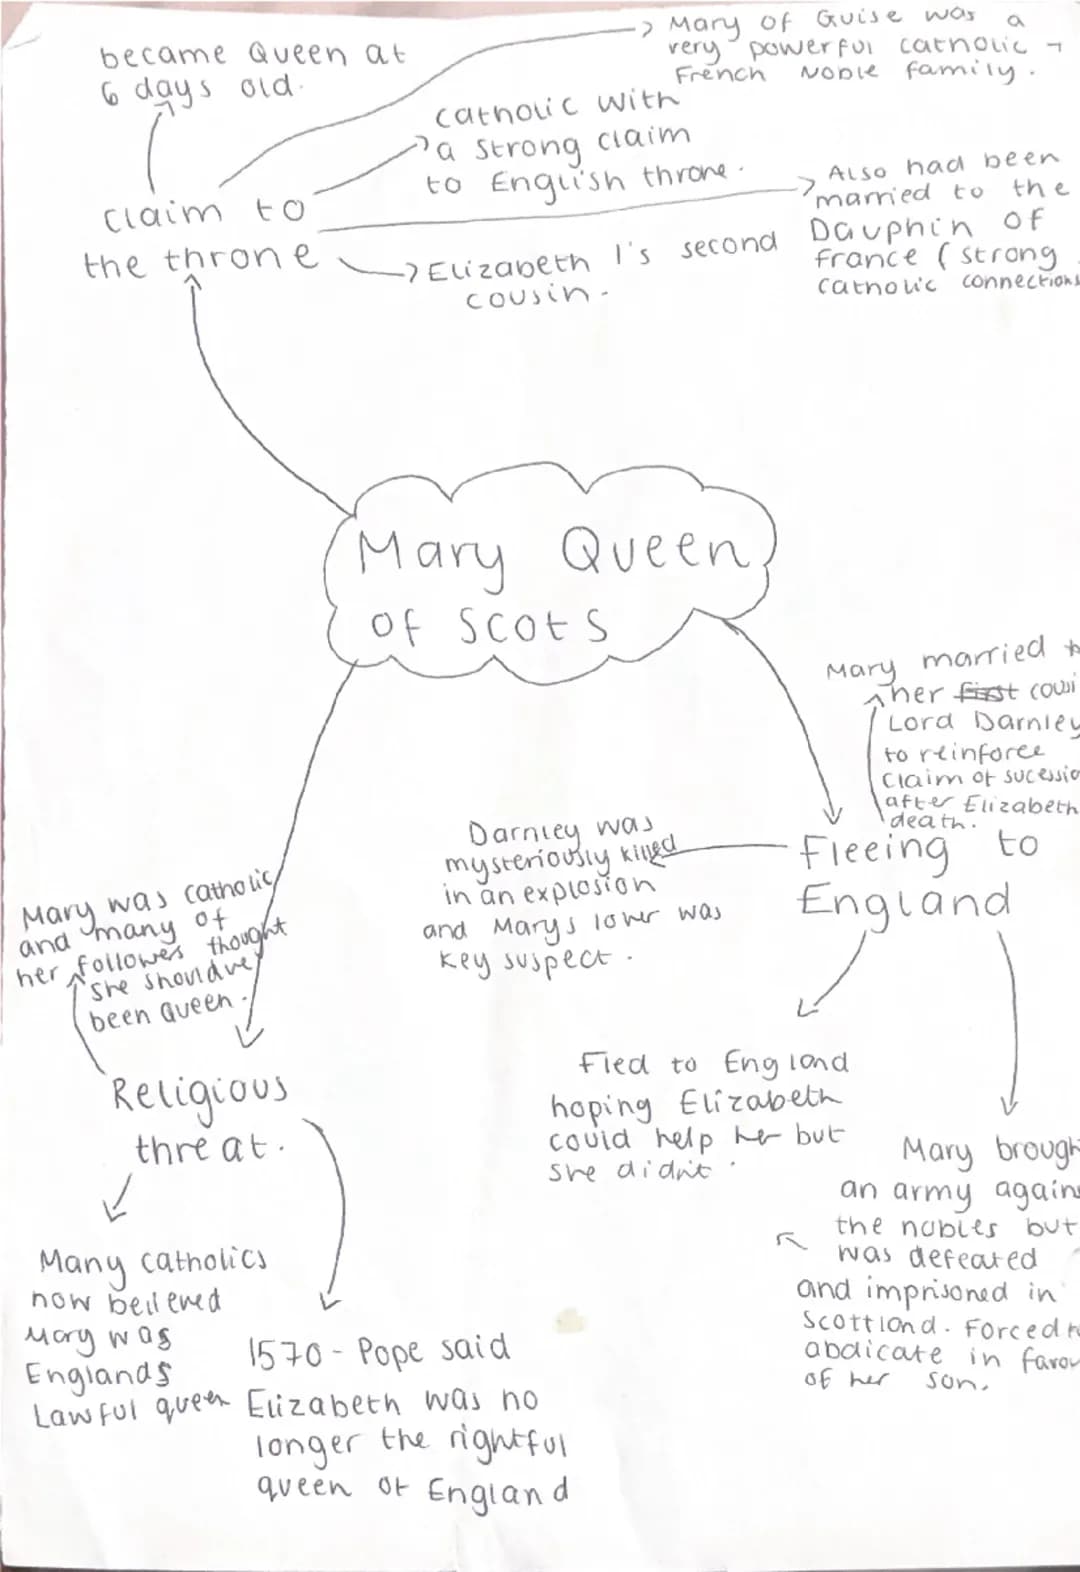 became Queen at
6 days old.
Mary of Guise was a
very powerful catholic
French Noble family.
catholic with
a strong claim
to English throne.
Also had been
married to the
Dauphin of
france (strong
catholic connections
claim to
the throne
Elizabeth 1's second
cousin.
Mary Queen
of Scots
Mary married
her first cousi
Lord Darnley
to reinforce
claim of sucessio
after Elizabeth
death.
Darnley was
mysteriously killed
in an explosion
and Marys lover was
key suspect.
Fleeing to
England
Mary was catholic
and many of
her followes thought
she should've
been Queen.
Religious
threat.
Fled to England
hoping Elizabeth
could help her but
she didn't.
Mary brough
an army again
the nobles but
was defeated
and imprisoned in
Scottland. Forced
abdicate in favou
of her son.
Many catholics
now believed
Mary was
Englands
Lawful queen
1570 - Pope said
Elizabeth was no
longer the rightful
queen of England